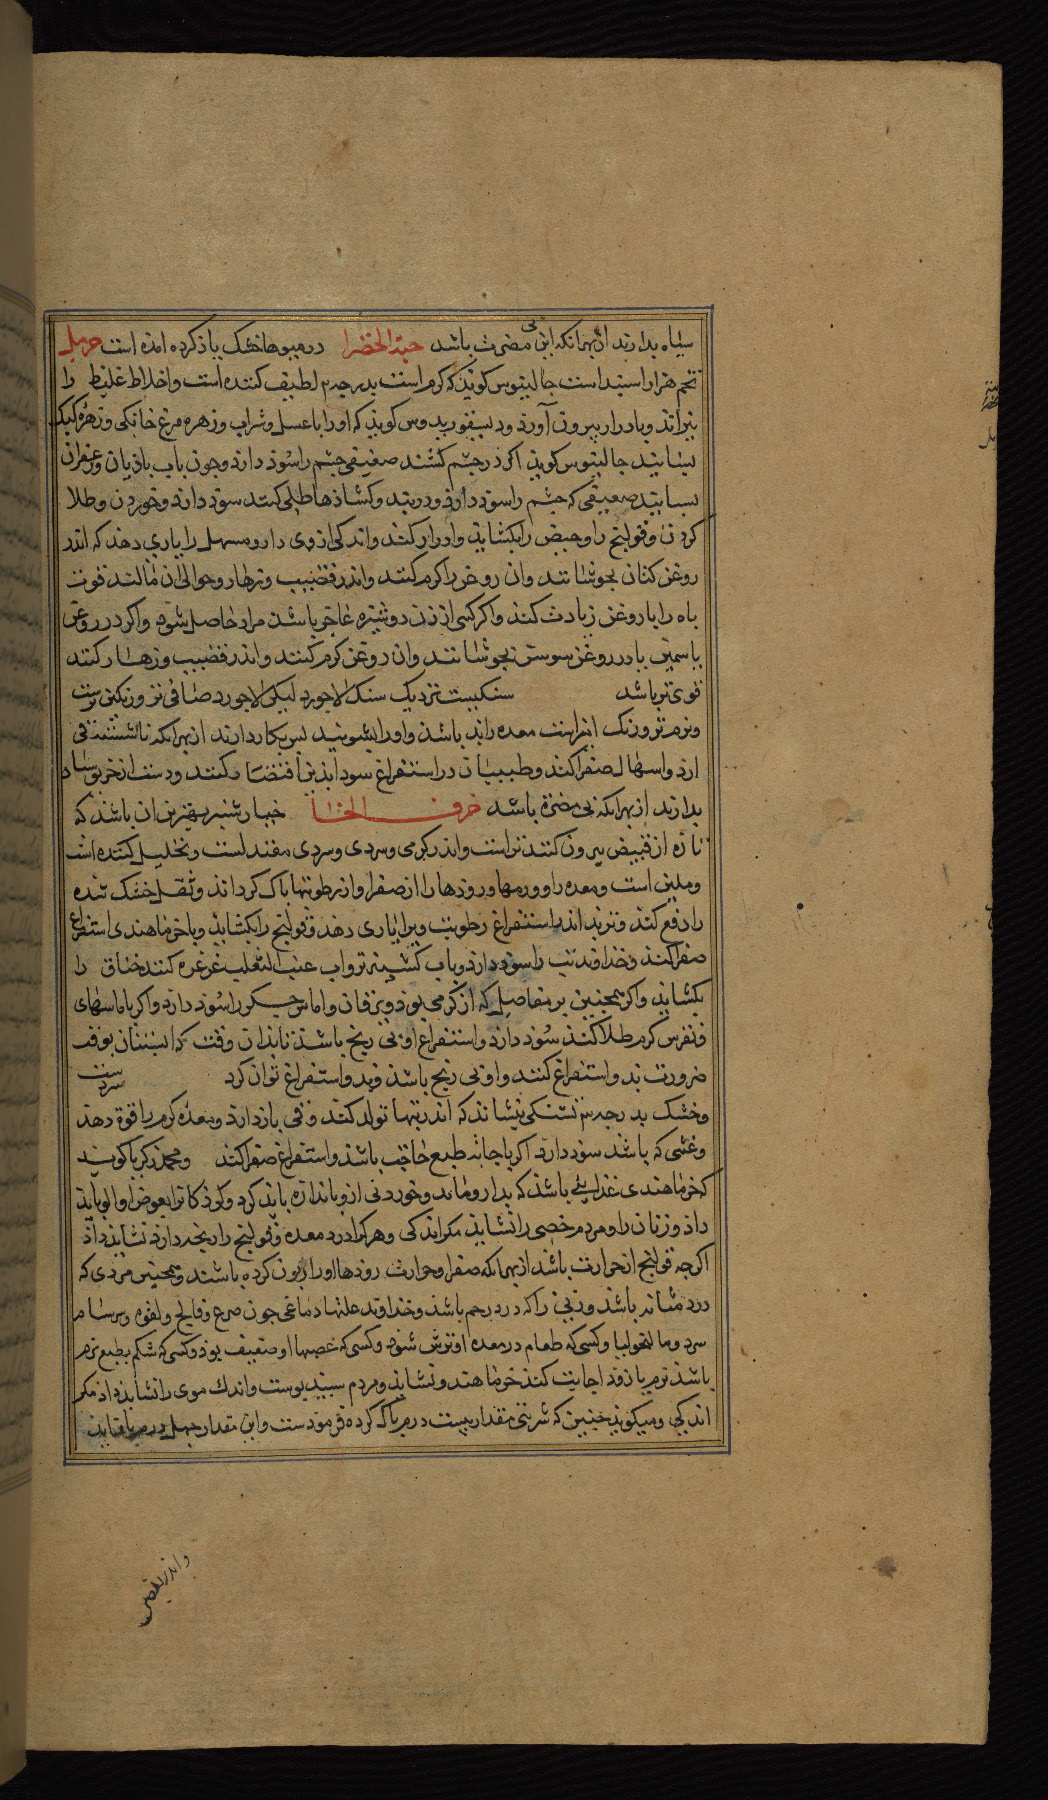 سیاه بدارند از بهر آنکه این بی مضرت باشد حبة الخضرا در میوها خشک یاذ کرده امذه است حرمل
تخم هزار اسپند است جالینوس کوید که کرم است بدرجه م لطیف کننده است و اخلاط غلیظ را
ببراند و بادرار بیرون آورد و دیسقوریدوس کوید که او را با عسل و شراب و زهره مرغ خانکی و زهره کبک
بسایند جالینوس کوید اکر در چشم کشند ضعیفی چشم را سوذ دارد و چون باب بادیان و زعفران
بسایند ضعیفی که چشم را سوذ دارد و کشاذها طلی کنند سوذ دارد و خوردن و طلا
کردن و قولنج را و حیض را بکشاید و ادرار کند و اندکی از وی دارو مسهل را یاری دهد که اندر
روغن کتان بجوشانند و ان روغن را کرم کنند و اندر قضیب و زهار و حوالی ان مالند قوت
باه را با روغن زیادت کند و اکر کسی از زن دوشیزه عاجز باشد مراد حاصل شود و اکر در روغن
یاسمین یا در روغن سوسن بجوشانند و ان روغن کرم کنند و اندر قضیب و زهار کنند
قوی تر باشد سنکیست نزدیک سنک لاجورد لیکن لاجورد صافی تر و رنکین ترست
و نرم تر و رنک این است معده را بد باشد و او را بشویند پس بکار دارند از بهر آنکه ناشسته قی
ارد و اسهال صفرا کند و طبیبان در استفراغ سودا بذین اقتصار کنند و دست از خربق سیاه
بدارند از بهر آنکه بی مضرة باشد حرف الخا خیار شنبر بهترین ان باشد که
تازه از قبیض بیرون کنند تر است و اندر کرمی و سردی و سردی معتدلست و تحلیل کننده است
و ملین است و معده را و ورمها و روذها را از صفرا و از رطوبتها باک کرداند و ثقل خشک شده
را دفع کند و تربد اندر استفراغ رطوبت ویرا یاری دهد و قولنج را بکشاید و با خرما هندی استفراغ
صفرا کند و خداوند تب را سوذ دارد و باب کشنیز تر و اب عنب الثعلب غرغره کنند خناق را
بکشاید و اکر همچنین بر مفاصل که از کرمی بوذ و یرقان و اماس جکر را سوذ دارد و اکر با اماسهای
و نقرس کرم طلا کنند سوذ دارد و استفراغ او بی رنج باشد تا بذان وقت که ابستنان بوقت
ضرورت بذو استفراغ کنند و او بی رنج باشد و بذو استفراغ توان کرد سردست
و خشک بدرجه م تشنکی بنشاند که اندر تبها تولد کند و قی باز دارد و معده کرم را قوة دهد
و غشی که باشد سوذ دارد اکر با جانب طبع حاجت باشد و استفراغ صفرا کند و محمد زکریا کوید
که خرما هندی غذایی باشد که بدارو ماند و خوردنی ازو باندازه باید کرد و کوذکانرا بعوض الو باید
داذ و زنان را و مردم خصی را نشاید مکر اندکی و هر کرا درد معده و قولنج را رنجه دارد نشاید داذ
اکرچه قولنج از حرارت باشد از بهر آنکه صفرا و حرارت روذها او را زبون کرده باشند و همچنین مردی که
درد مثانه باشد و زنی را که درد رحم باشد و خداوند علتها دماغی چون صرع و فالج و لقوه و سرسام
سرد و مالیخولیا و کسی که طعام در معده او ترش شوذ و کسی که عصبها او ضعیف بوذ و کسی که شکم بطبع نرم
باشد نرم یا زوذ اجابت کند خرما هند و نشاید و مردم سپید پوست و اندک موی را نشاید داذ مکر
اندکی و میکوید چنین که شربتی مقدار بیست درم پاک کرده فرمودست و این مقدار چهل درم
و اندر بعضی